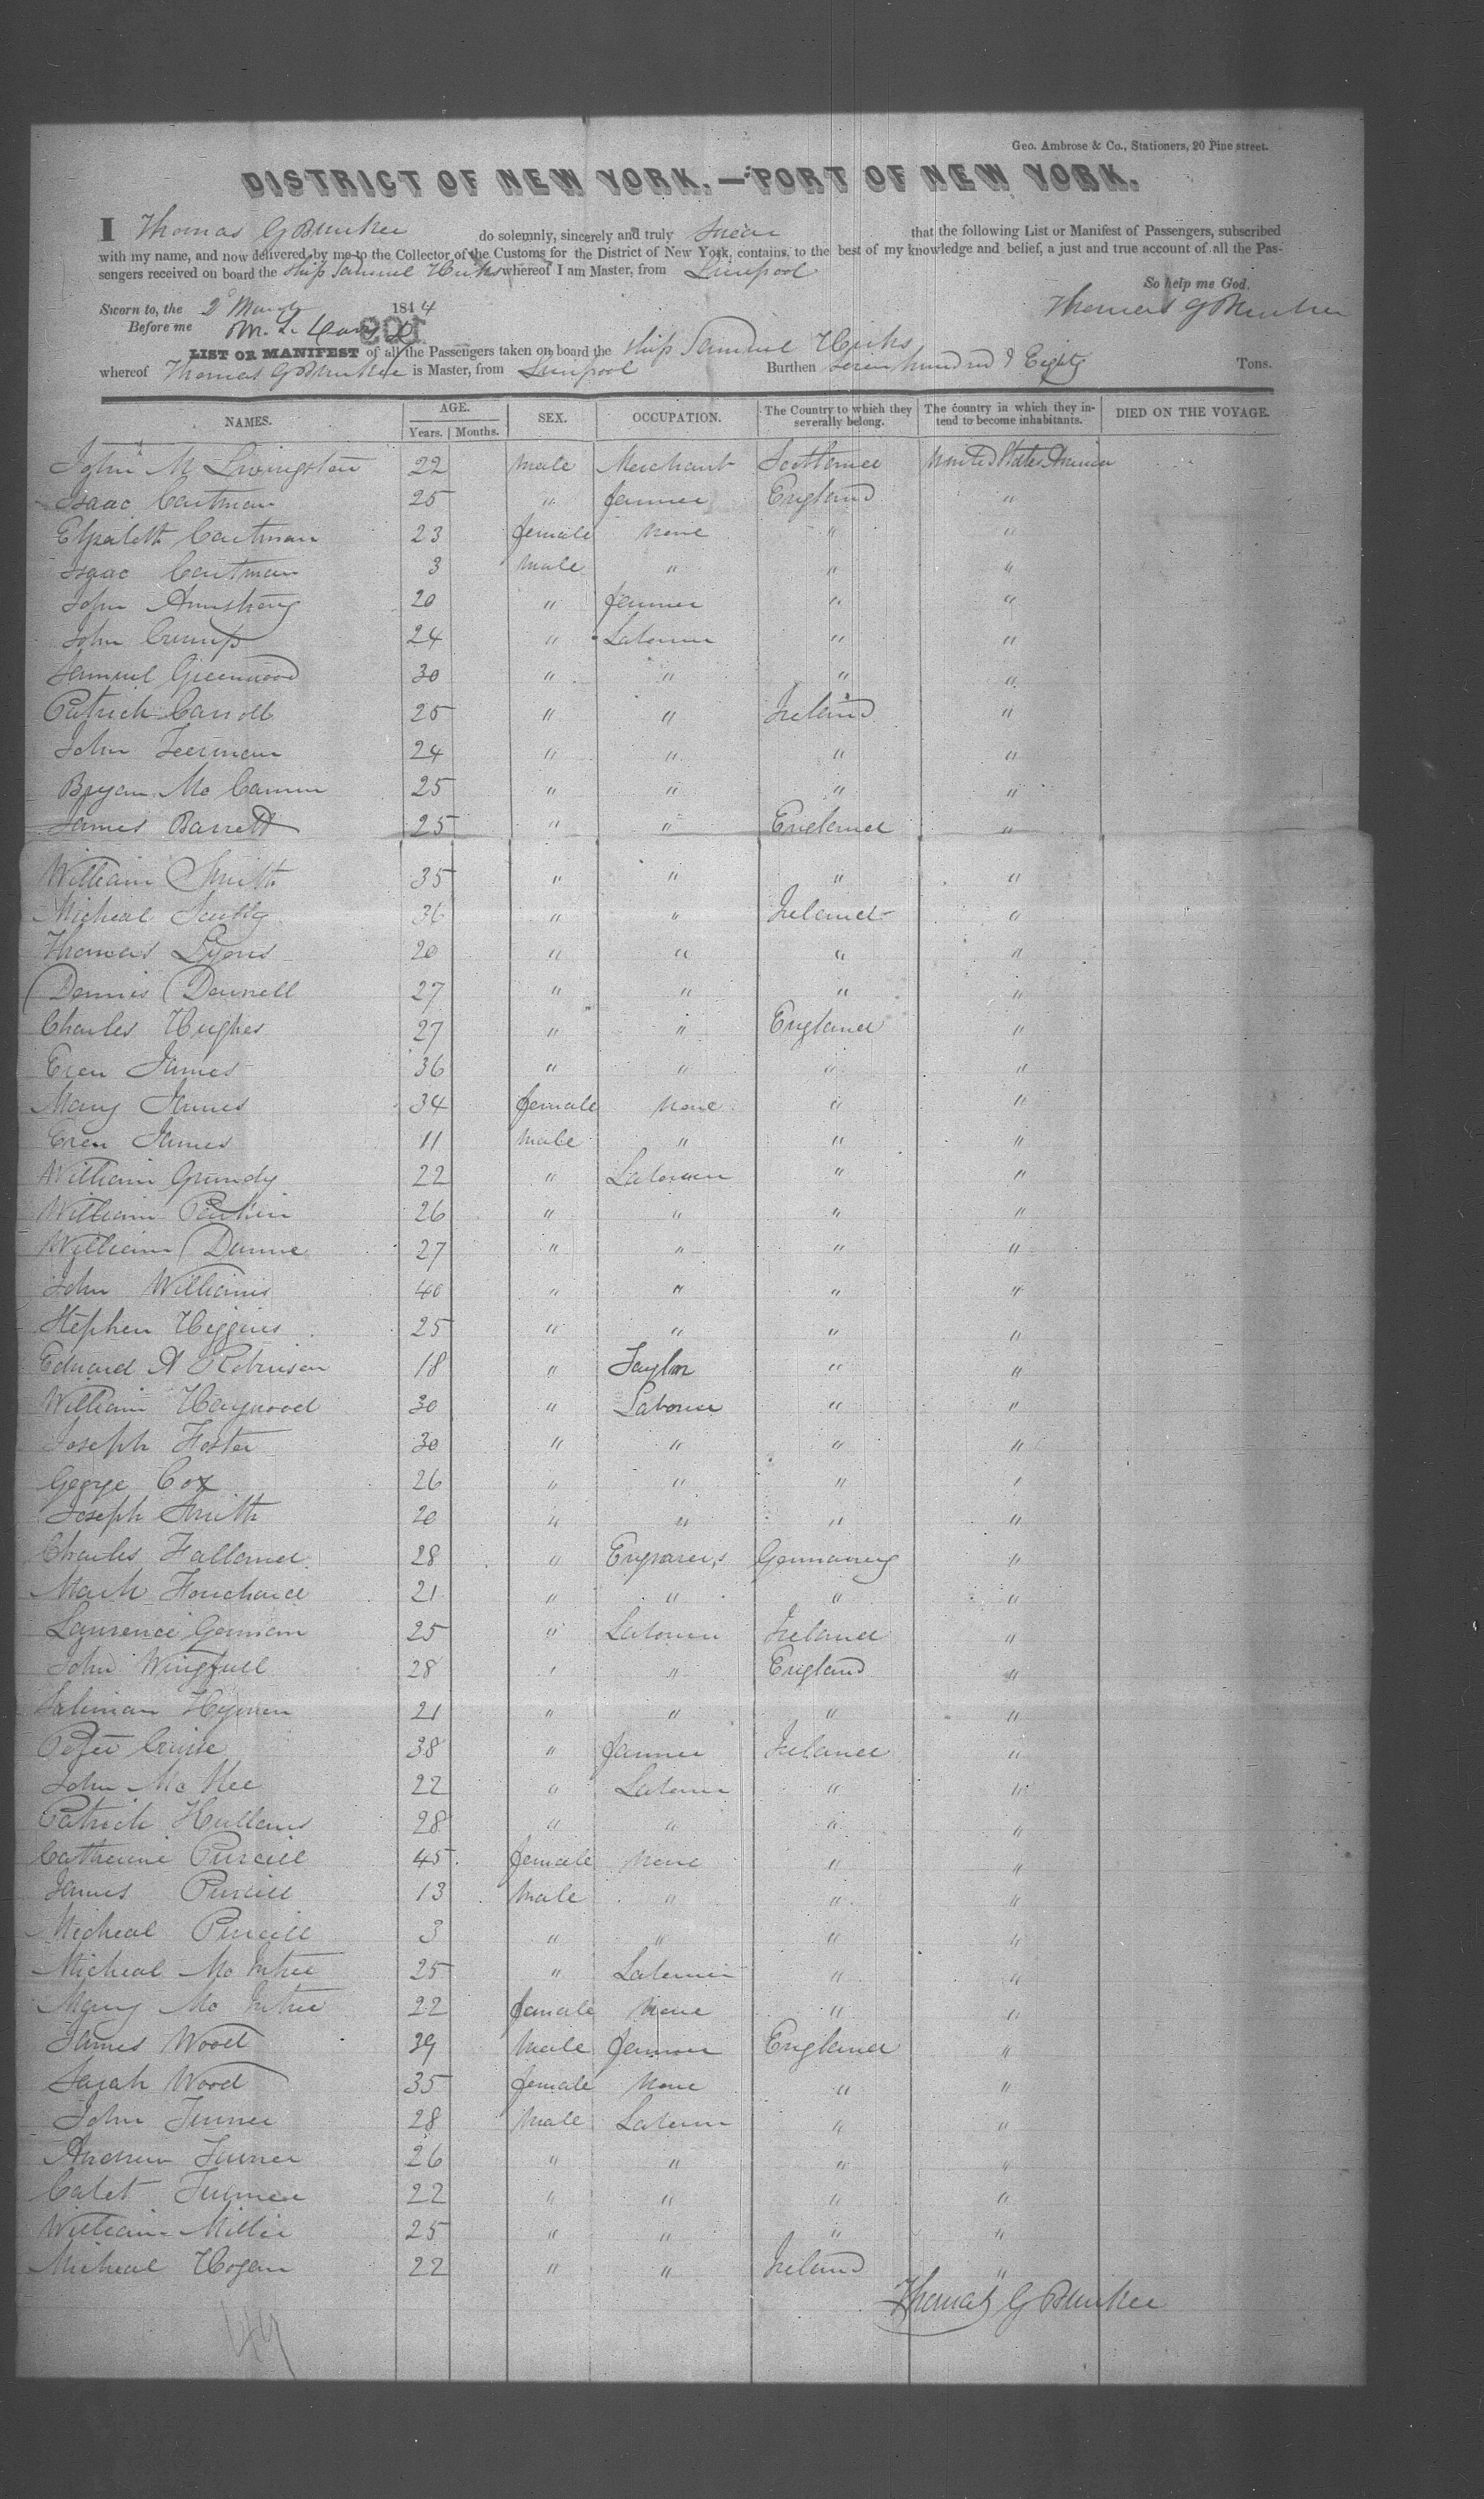 Geo. Ambrose & Co., Stationers, 20 Pine street.
DISTRICT OF NEW YORK.—PORT OF NEW YORK.
I Thomas G Bunker do solemnly, sincerely and truly swear that the following List or Manifest of Passengers, subscribed
with my name, and now delivered by me to the Collector of the Customs for the District of New York, contains, to the best of my knowledge and belief, a just and true account of all the Pas-
sengers received on board the ship Samuel Hicks whereof I am Master, from Liverpool
So help me God.
Sworn to, the 2d March 1844 Thomas G Bunker
Before me
LIST OR MANIFEST of all the Passengers taken on board the ship Samuel Hicks
whereof Thomas G Bunker is Master, from Liverpool Burthen Seven hundred & Eighty Tons.
NAMES. AGE. Years. Months. SEX. OCCUPATION. The Country to which they severally belong. The country in which they in-tend to become inhabitants. DIED ON THE VOYAGE.
John M Livingston 22 male Merchant Scotland United States America
Isaac Cartman 25 " farmer England "
Elizabeth Cartman 23 female none " "
Isaac Cartman 3 male " " "
John Armstrong 20 " farmer " "
John Crump 24 " Labourer " "
Samuel Greenwood 30 " " " "
Patrick Carroll 25 " " Ireland "
John 24 " " " "
Bryan Mc Cannn 25 " " " "
James Barrett 25 " " England "
William Smith 35 " " " "
Micheal Scully 36 " " Ireland "
Thomas Lyons 20 " " " "
Dennis Dannell 27 " " " "
Charles Hughes 27 " " England "
Even James 36 " " " "
Mary James 34 female none " "
Even James 11 male " " "
William Grundy 22 " Labourer " "
William Parkin 26 " " " "
William Dunne 27 " " " "
John Williams 40 " " " "
Stephen Higgins 25 " " " "
Edward A Robinson 18 " Taylor " "
William Haywood 30 " Labourer " "
Joseph Foster 30 " " " "
George Cox 26 " " " "
Joseph Smith 20 " " " "
Charles Falland 28 " Engravers Germany "
Mark 21 " " " "
Laurence Gorman 25 " Labourer Ireland "
John Wingfull 28 " " England "
Soliman Hymen 21 " " " "
Peter Cruise 38 " farmer Ireland "
John Mc Kee 22 " Labourer " "
Patrick Hullans 28 " " " "
Catherine Purcill 45 female none " "
James Purcill 13 male " " "
Micheal Purcill 3 " " " "
Micheal Mc Entree 25 " Labourer " "
Mary Mc Entree 22 female none " "
James Wood 39 male farmer England "
Sarah Wood 35 female none " "
John Turner 28 male Labourer " "
Andrew Turner 26 " " " "
Calet Turner 22 " " " "
William Miller 25 " " " "
Micheal Hogan 22 " " Ireland "
Thomas G Bunker
49